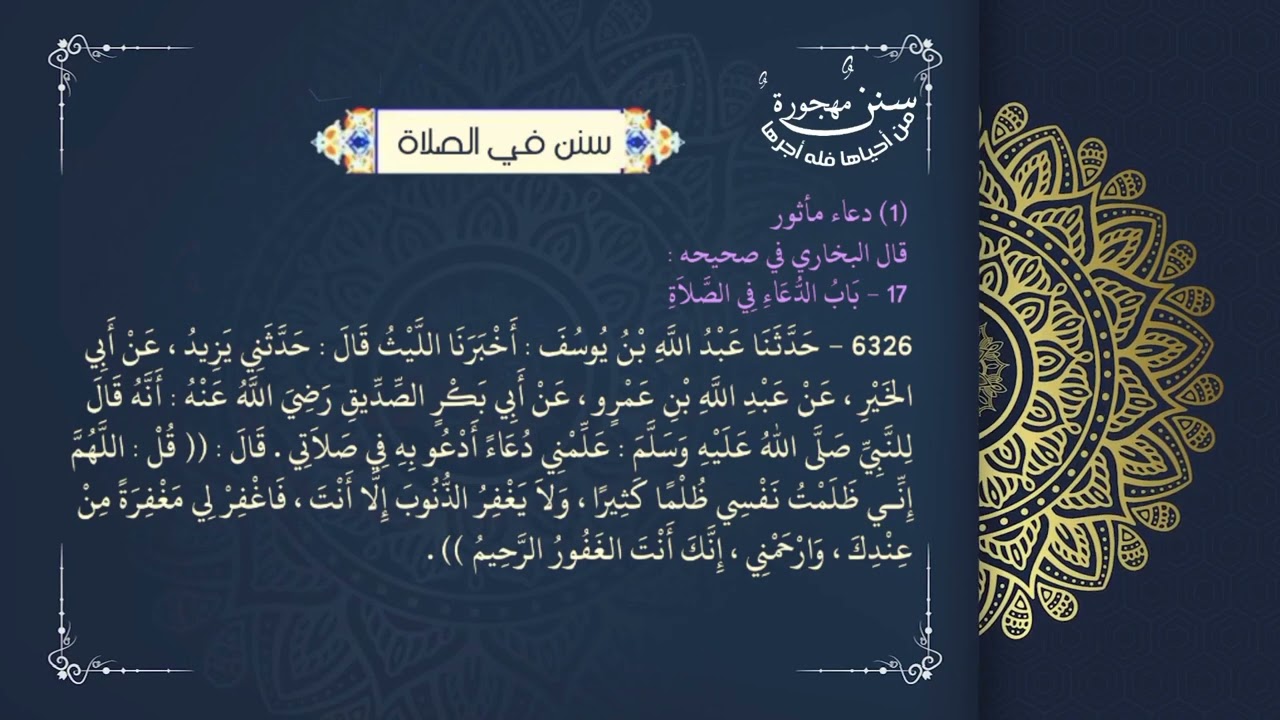 سننٌ مهجورةٌ
من أحياها فله أجرها
سنن في الصلاة
(1) دعاء مأثور
قال البخاري في صحيحه :
17 - بَابُ الدُّعَاءِ فِي الصَّلاَةِ
6326 - حَدَّثَنَا عَبْدُ اللَّهِ بْنُ يُوسُفَ : أَخْبَرَنَا اللَّيْثُ قَالَ : حَدَّثَنِي يَزِيدُ ، عَنْ أَبِي
الخَيْرِ ، عَنْ عَبْدِ اللَّهِ بْنِ عَمْرٍو ، عَنْ أَبِي بَكْرٍ الصِّدِّيقِ رَضِيَ اللَّهُ عَنْهُ : أَنَّهُ قَالَ
لِلنَّبِيِّ صَلَّى اللهُ عَلَيْهِ وَسَلَّمَ : عَلِّمْنِي دُعَاءً أَدْعُو بِهِ فِي صَلاَتِي . قَالَ : (( قُلْ : اللَّهُمَّ
إِنِّي ظَلَمْتُ نَفْسِي ظُلْمًا كَثِيرًا ، وَلاَ يَغْفِرُ الذُّنُوبَ إِلَّا أَنْتَ ، فَاغْفِرْ لِي مَغْفِرَةً مِنْ
عِنْدِكَ ، وَارْحَمْنِي ، إِنَّكَ أَنْتَ الغَفُورُ الرَّحِيمُ )) .